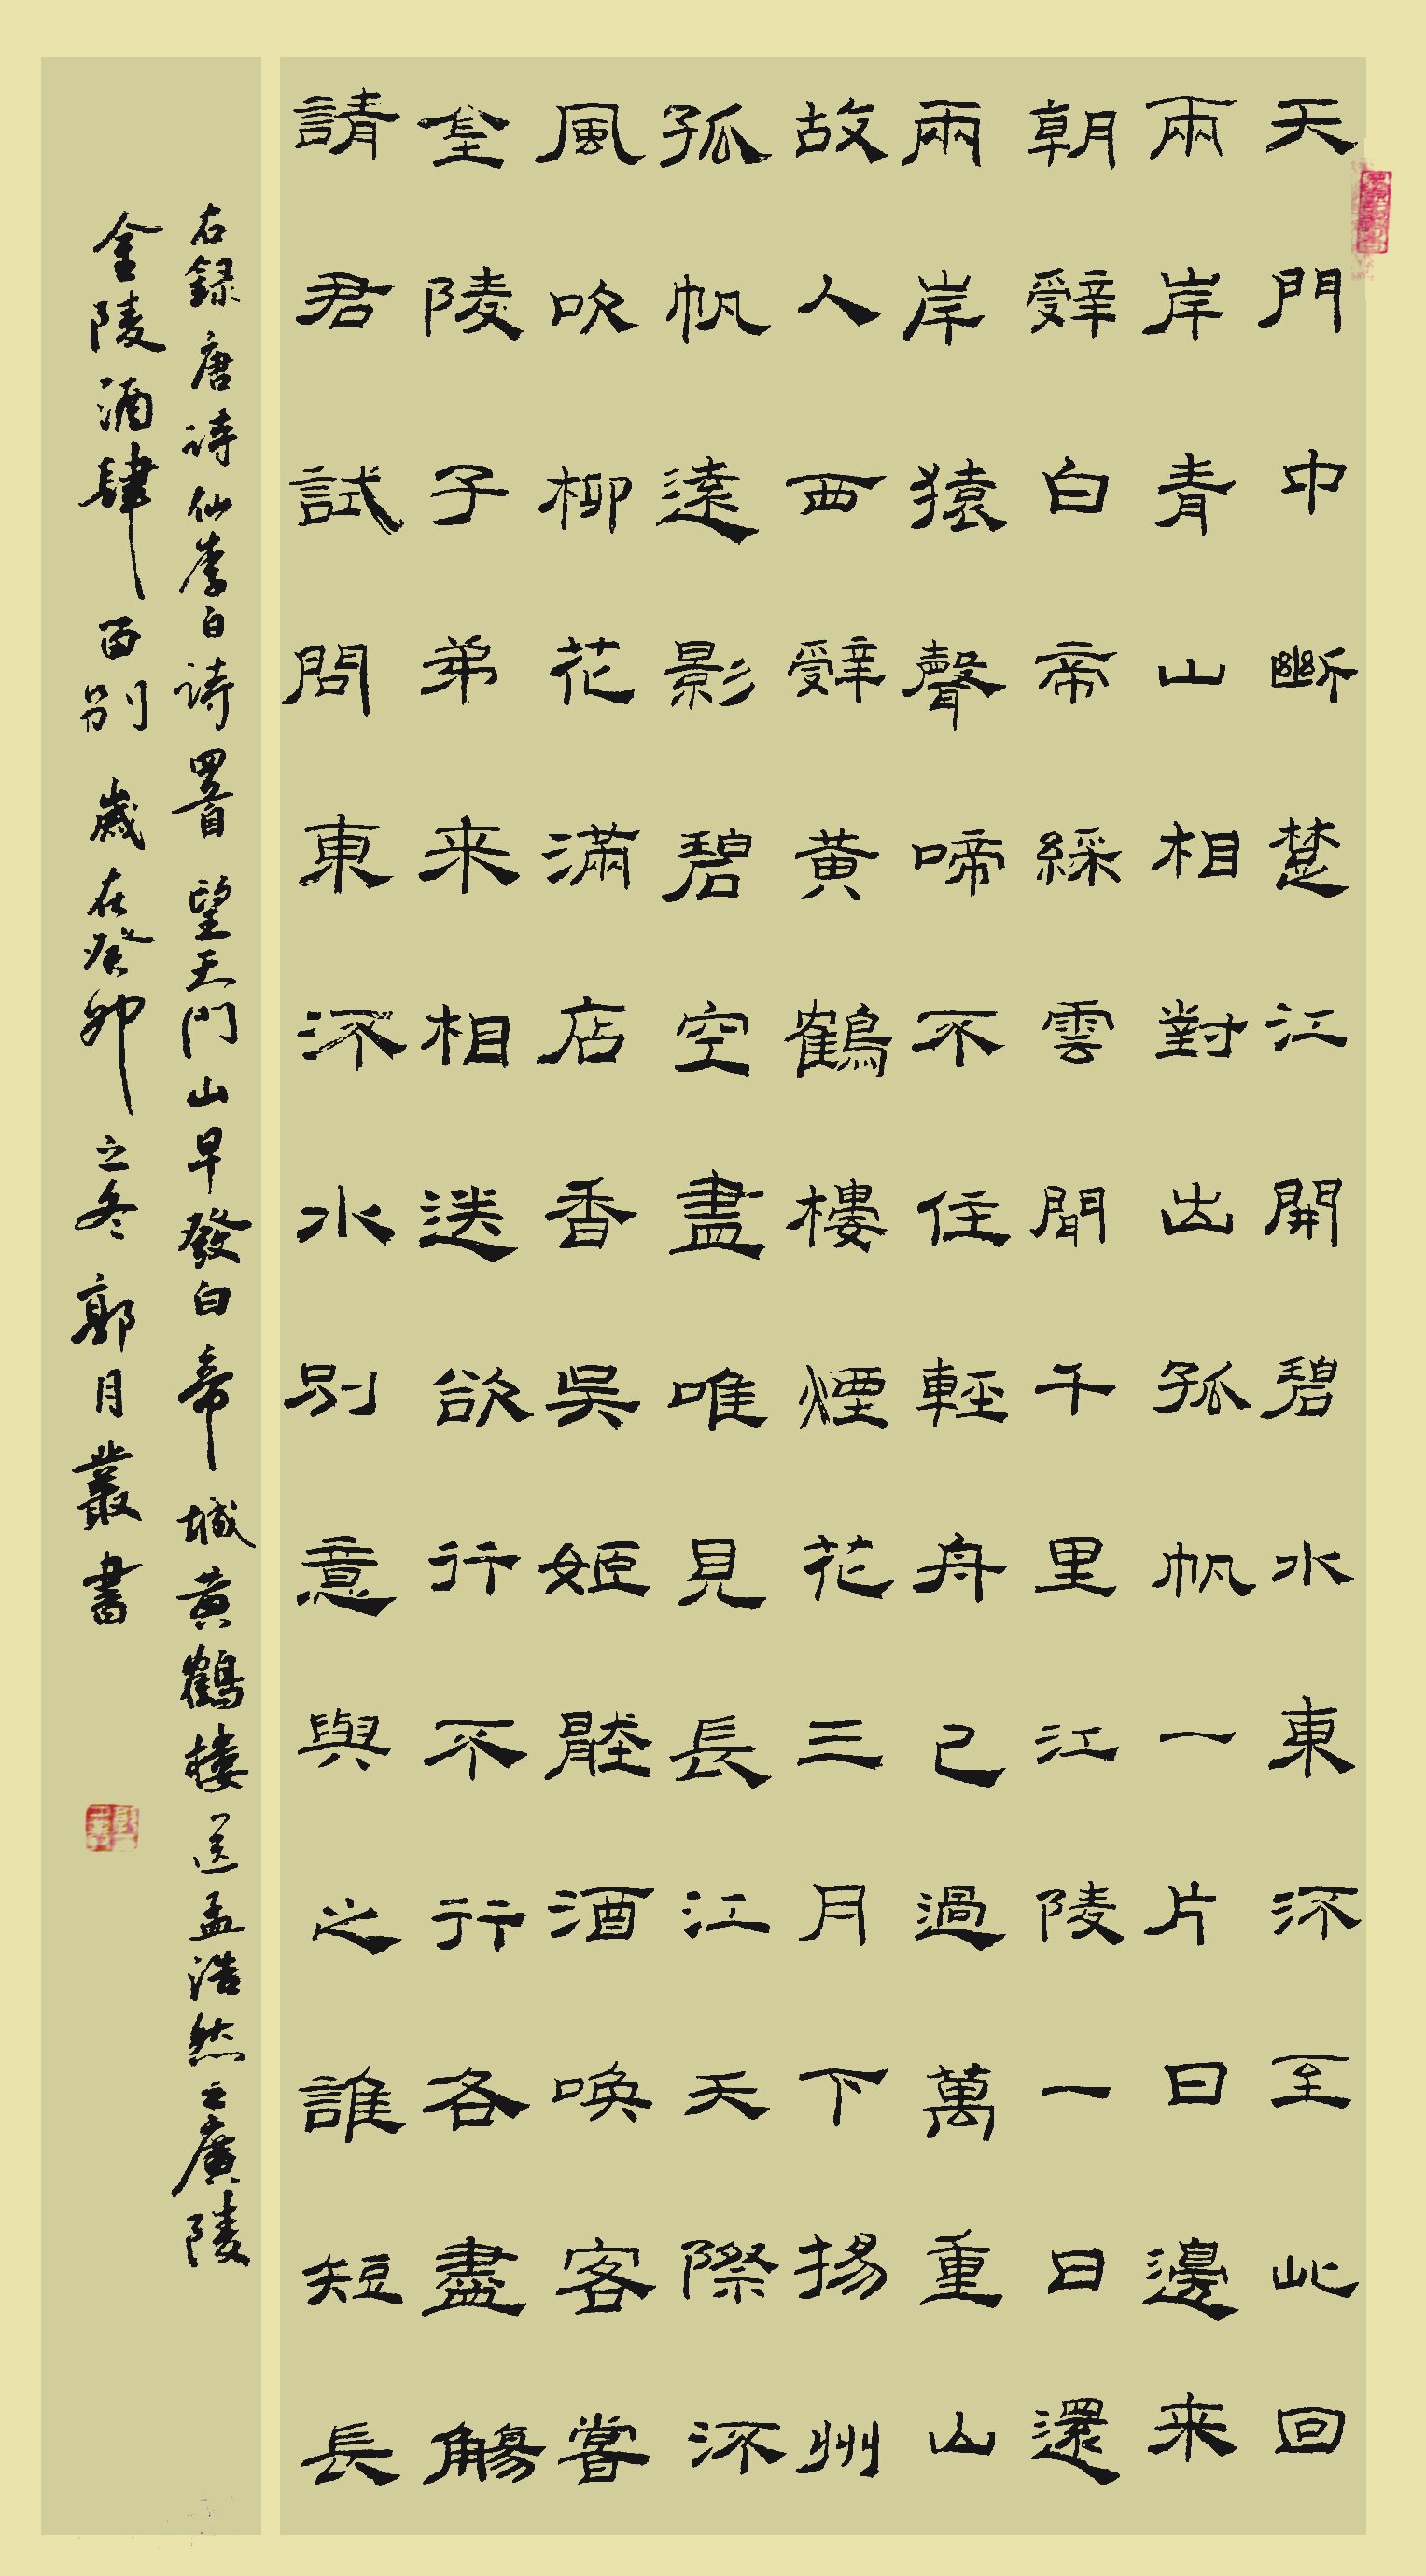 天門中斷楚江開碧水東流至此回
兩岸青山相對出孤帆一片日邊来
朝辭白帝綵雲間千里江陵一日還
兩岸猿聲啼不住輕舟已過萬重山
故人西辭黃鶴樓煙花三月下揚州
孤帆遠影碧空盡唯見長江天際流
風吹柳花滿店香吳姬壓酒喚客嘗
金陵子弟来相送欲行不行各盡觴
請君試問東流水別意與之誰短長
右録唐詩仙李白詩四首望天門山早發白帝城黄鶴樓送孟浩然之廣陵
金陵酒肆留別歲在癸卯之冬郭月叢書